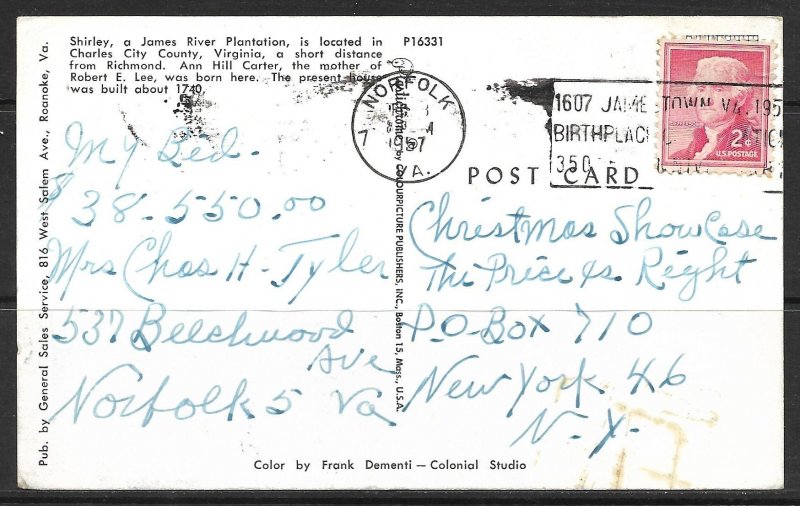 Shirley, a James River Plantation, is located in
Charles City County, Virginia, a short distance
from Richmond. Ann Hill Carter, the mother of
Robert E. Lee, was born here. The present house
was built about 1740.
P16331
Pub. by General Sales Service, 816 West Salem Ave., Roanoke, Va.
by COLOURPICTURE PUBLISHERS, INC., Boston 15, Mass., U.S.A.
NORFOLK
7
1957
VA.
1607 JAMESTOWN VA. 195
BIRTHPLAC
350
2¢
U.S. POSTAGE
POST CARD
My Bid.
$38-550.00
Mrs Chas H. Tyler
537 Beechwood
Ave
Norfolk 5 Va
Christmas Showcase
The Price is Right
P.O. Box 710
New York 46
N.Y.
Color by Frank Dementi — Colonial Studio